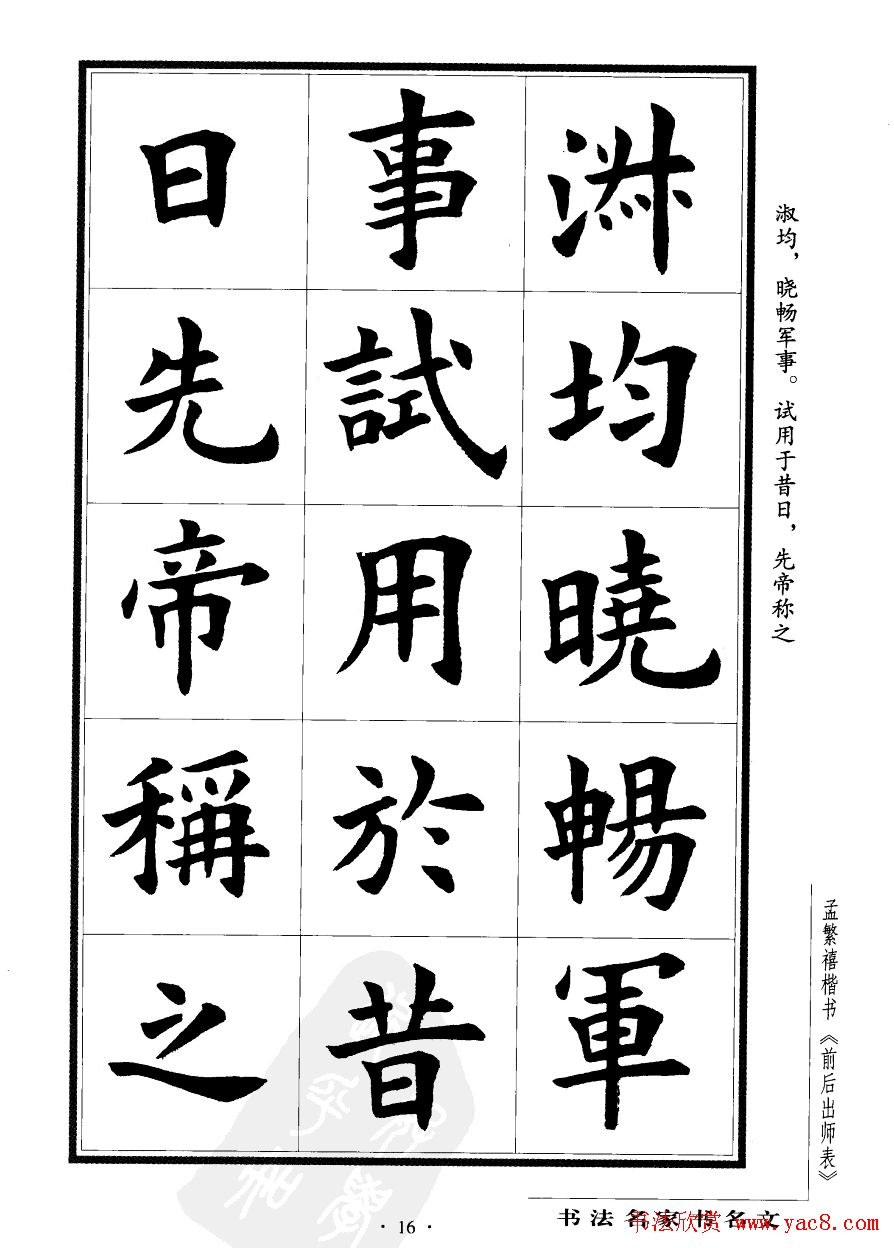 淑均，晓畅军事。试用于昔日，先帝称之
淑均曉暢軍
事試用於昔
日先帝稱之
孟繁禧楷书《前后出师表》
书法名家书名文
·16·
书法欣赏 www.yac8.com